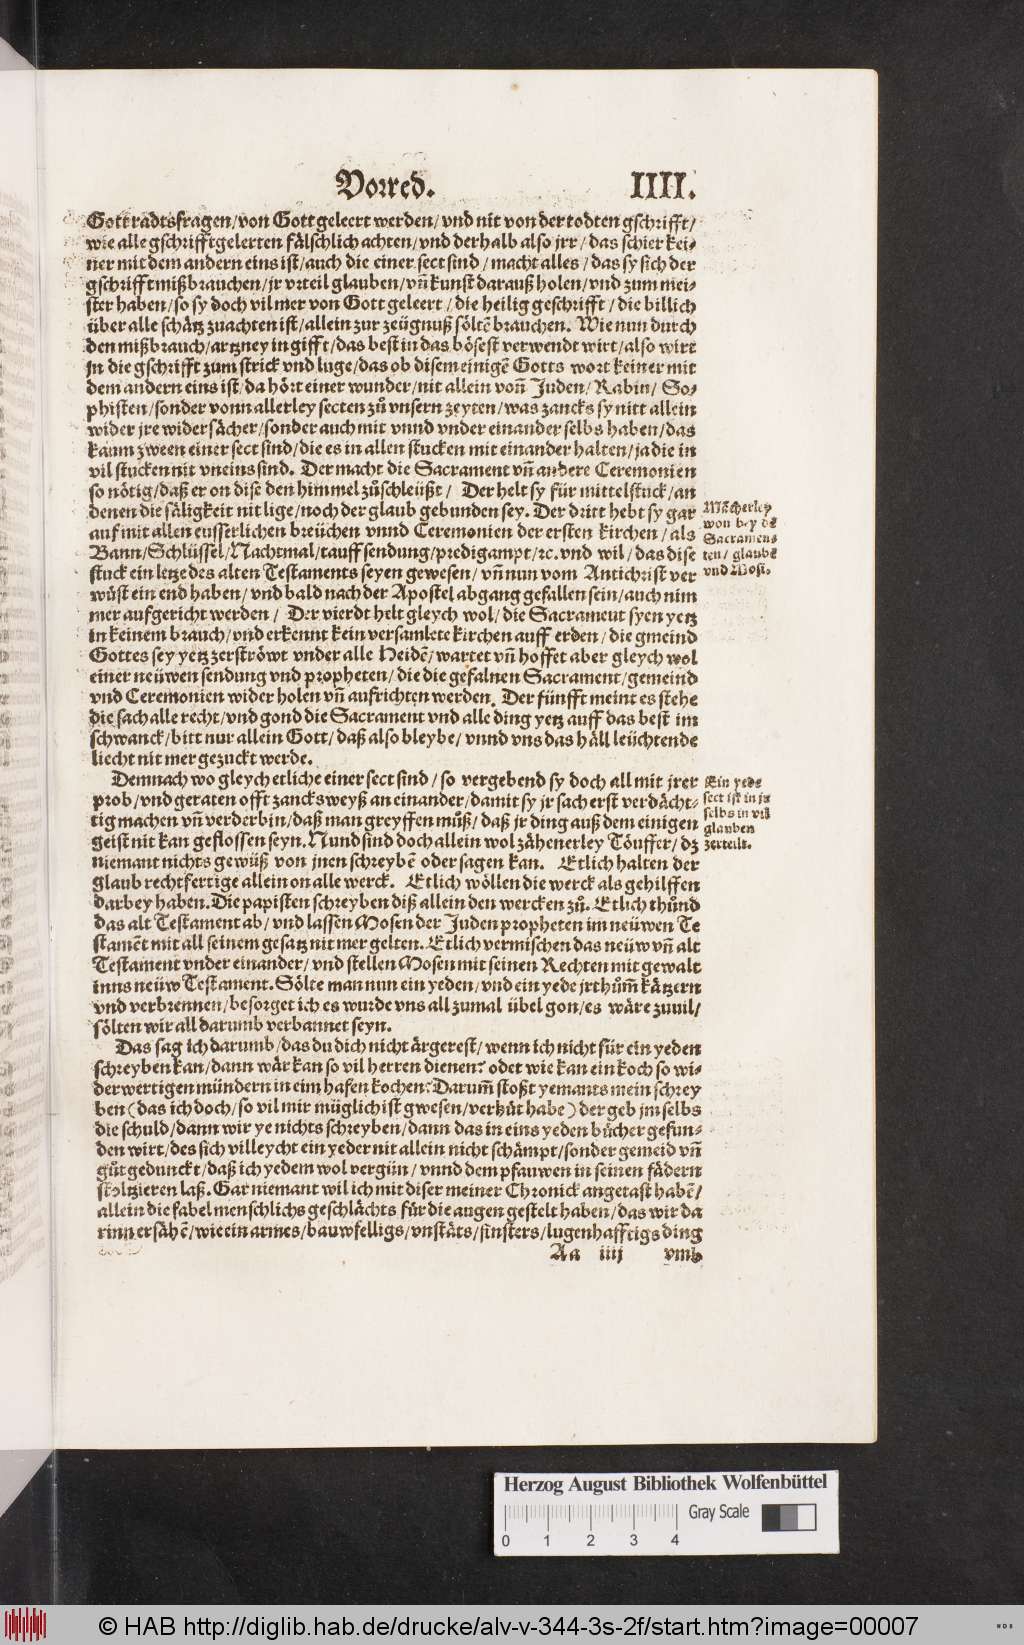 Vorred.
IIII.
Gott radtsfragen/von Gott geleert werden/vnd nit von der todten gschrifft/
wie alle gschrifftgelerten fälschlich achten/vnd derhalb also jrr/das schier kei-
ner mit dem andern eins ist/auch die einer sect sind/macht alles/das sy sich der
gschrifft mißbrauchen/jr vrteil glauben/vñ kunst darauß holen/vnd zum mei-
ster haben/so sy doch vil mer von Gott geleert/die heilig geschrifft/die billich
über alle schätz zuachten ist/allein zur zeügnuß söltē brauchen. Wie nun durch
den mißbrauch/artzney in gifft/das best in das bösest verwendt wirt/also wirt
jn die gschrifft zum strick vnd luge/das ob disem einigē Gotts wort keiner mit
dem andern eins ist/da hört einer wunder/nit allein voñ Juden/Rabin/So-
phisten/sonder vonn allerley secten zů vnsern zeyten/was zancks sy nitt allein
wider jre widersächer/sonder auch mit vnnd vnder einander selbs haben/das
kaum zween einer sect sind/die es in allen stucken mit einander halten/ja die in
vil stucken nit vneins sind. Der macht die Sacrament vñ andere Ceremonien
so nötig/daß er on dise den himmel zůschleüßt/ Der helt sy für mittelstuck/an
denen die säligkeit nit lige/noch der glaub gebunden sey. Der dritt hebt sy gar
auf mit allen eusserlichen breüchen vnnd Ceremonien der ersten kirchen/als
Bann/Schlüssel/Nachtmal/tauff sendung/predigampt/rc. vnd wil/das dise
stuck ein letze des alten Testaments seyen gewesen/vñ nun vom Antichrist ver
wüst ein end haben/vnd bald nach der Apostel abgang gefallen sein/auch nim
mer aufgericht werden/ Der vierdt helt gleych wol/die Sacrament syen yetz
in keinem brauch/vnd erkennt kein versamlete kirchen auff erden/die gmeind
Gottes sey yetz zerströwt vnder alle Heidē/wartet vñ hoffet aber gleych wol
einer neüwen sendung vnd propheten/die die gefalnen Sacrament/gemeind
vnd Ceremonien wider holen vñ aufrichten werden. Der fünfft meint es stehe
die sach alle recht/vnd gond die Sacrament vnd alle ding yetz auff das best im
schwanck/bitt nur allein Gott/daß also bleybe/vnnd vns das häll leüchtende
liecht nit mer gezuckt werde.
Mācherley
won bey dē
Sacramen-
ten/glaubē
vnd Mosi.
Demnach wo gleych etliche einer sect sind/so vergebend sy doch all mit jrer
prob/vnd geraten offt zancksweyß an einander/damit sy jr sach erst verdächt-
tig machen vñ verderbin/daß man greyffen můß/daß jr ding auß dem einigen
geist nit kan geflossen seyn. Nund sind doch allein wol zähenerley Töuffer/dz
niemant nichts gewüß von jnen schreybē oder sagen kan. Etlich halten der
glaub rechtfertige allein on alle werck. Etlich wöllen die werck als gehilffen
darbey haben. Die papisten schreyben diß allein den wercken zů. Etlich thůnd
das alt Testament ab/vnd lassen Mosen der Juden propheten im neüwen Te
stamēt mit all seinem gesatz nit mer gelten. Etlich vermischen das neüw vñ alt
Testament vnder einander/vnd stellen Mosen mit seinen Rechten mit gewalt
inns neüw Testament. Sölte man nun ein yeden/vnd ein yede jrthům̄ kätzern
vnd verbrennen/besorget ich es wurde vns all zumal übel gon/es wäre zuuil/
sölten wir all darumb verbannet seyn.
Ein yede
sect ist in jr
selbs in vil
glauben
zerteilt.
Das sag ich darumb/das du dich nicht ärgerest/wenn ich nicht für ein yeden
schreyben kan/dann wär kan so vil herren dienen? odet wie kan ein koch so wi-
derwertigen mündern in eim hafen kochen? Darum̄ stoßt yemants mein schrey
ben (das ich doch/so vil mir müglich ist gwesen/verhüt habe) der geb jm selbs
die schuld/dann wir ye nichts schreyben/dann das in eins yeden bücher gefun-
den wirt/des sich villeycht ein yeder nit allein nicht schämpt/sonder gemeid vñ
gůt gedunckt/daß ich yedem wol vergün/vnnd dem pfauwen in seinen fädern
stoltzieren laß. Gar niemant wil ich mit diser meiner Chronick angetast habē/
allein die fabel menschlichs geschlächts für die augen gestelt haben/das wir da
rinn ersähē/wie ein armes/bauwfelligs/vnstäts/finsters/lugenhafftigs ding
Aa iiij vmb
Herzog August Bibliothek Wolfenbüttel
0 1 2 3 4 Gray Scale
© HAB http://diglib.hab.de/drucke/alv-v-344-3s-2f/start.htm?image=00007